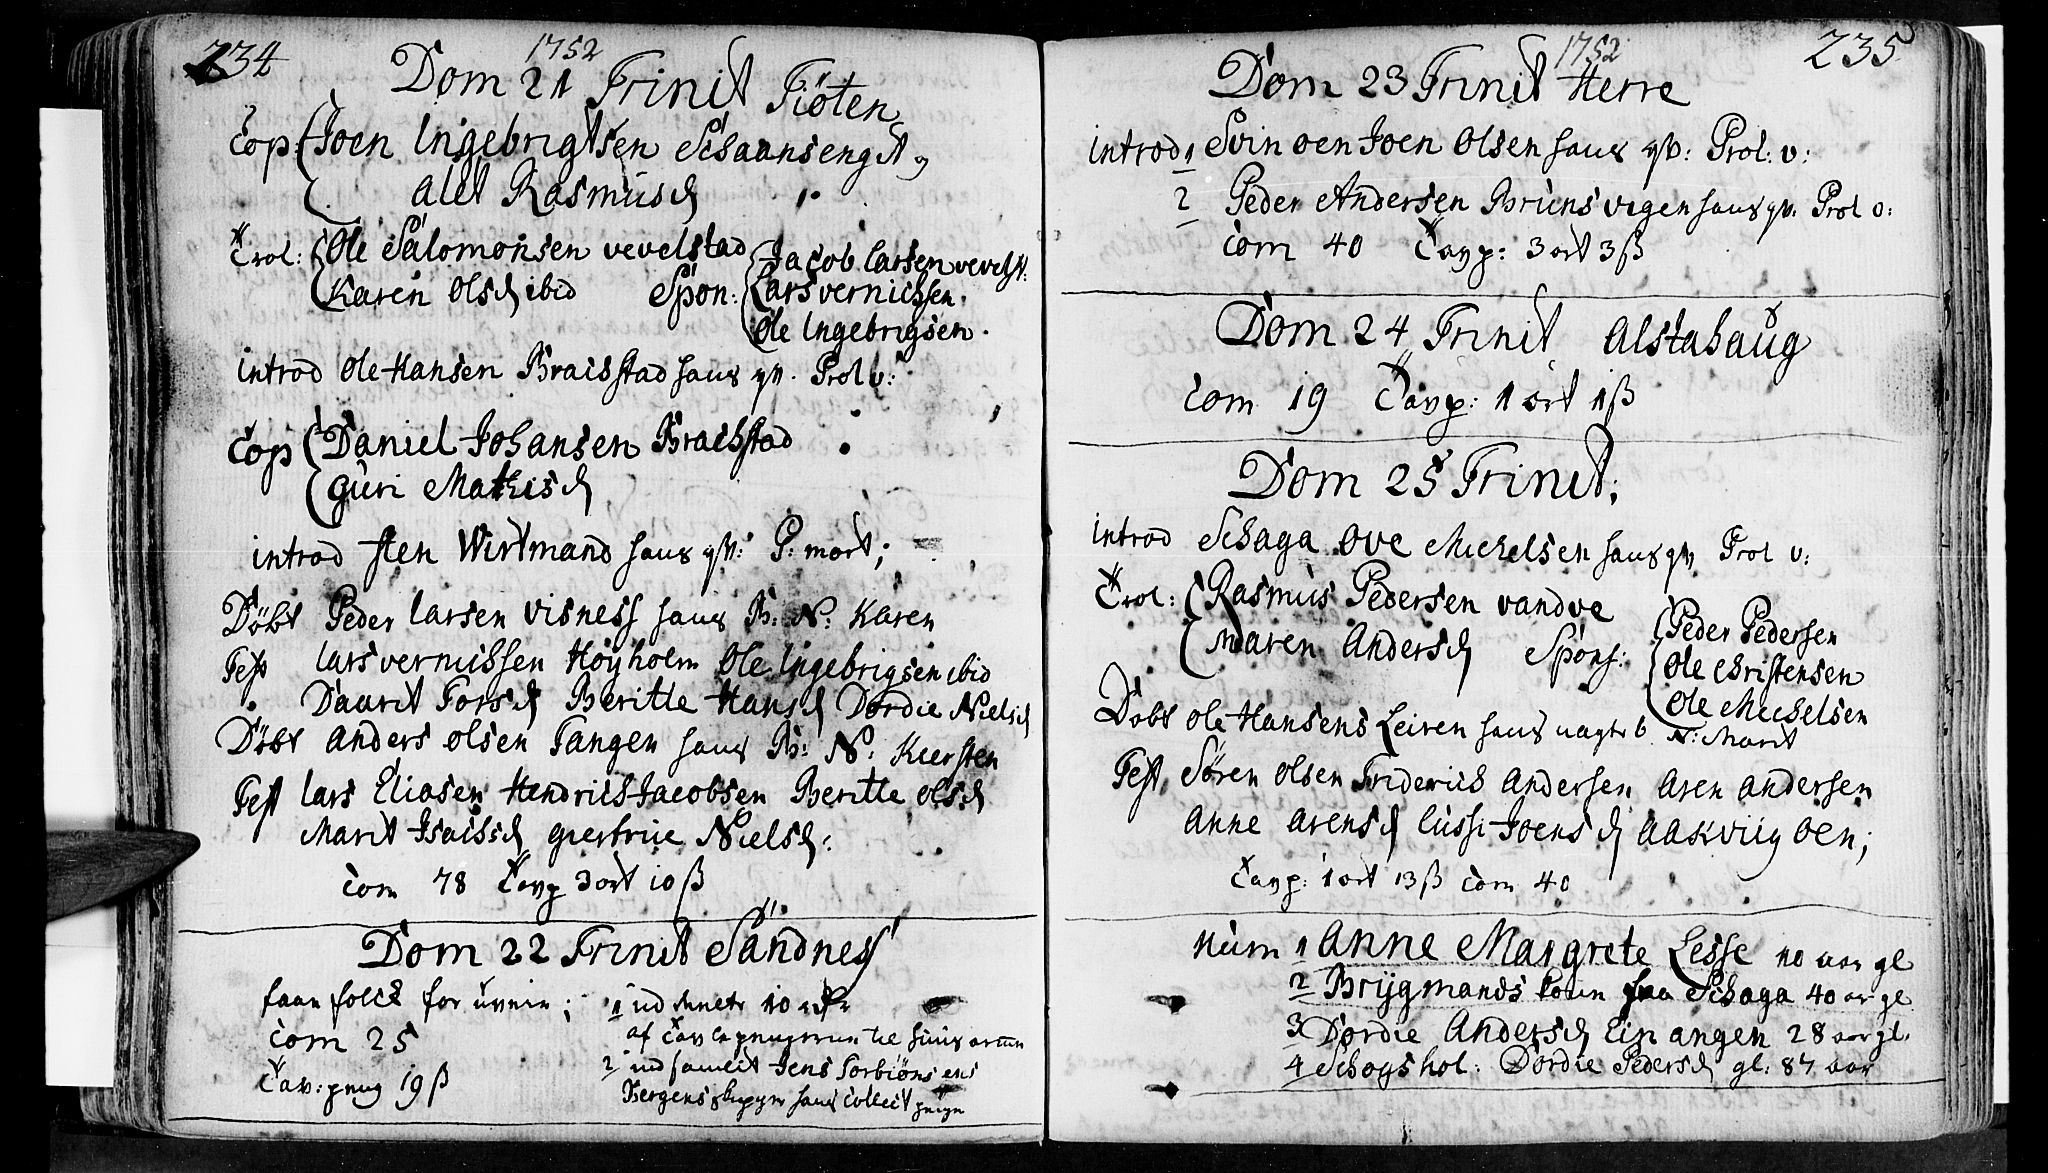 234
1752
Dom 21 Trinit Tiöten
Cop: Joen Ingebrigtsen Schaansenget og
Alet Rasmusd
Trol: Ole Salomonsen vevelstad
Karen Olsd ibid Spon: Jacob Larsen vevelst:
Lars vernichsen
Ole Ingebrigsen.
introd Ole Hansen Brachstad hans qv. Prol v:
Cop Daniel Johansen Brachstad
Guri Mathisd
introd Sten Wirtmand hans qv: P: mort;
Döbt Peder Larsen visness hans B: N: Karen
Test Lars vernichsen Höyholm Ole Ingebrigsen ibid
Daarit Torsd Beritte Hansd Dordie Nielsd
Döbt Anders Olsen Tangen hans B: N: Kiersten
Test Lars Eliasen Hendrich Jacobsen Beritte Olsd
Marit Isachsd giertrue Nielsd:
Com 78 Tavp 3 ort 10 ß
Dom 22 Trinit Sandness
faa folck for uveir;
Com 25
Tav: peng 19 ß
1 ud
af Tavlepengerne til huus armen
2 Jens Torbiönsens
Bergens hans Collect
235
1752
Dom 23 Trinit Herre
introd 1 Svinöen Joen Olsen hans qv: Prol: v:
2 Peder Andersen Brunsvigen hans qv. Prol v:
Com 40 Tavp: 3 ort 3 ß
Dom 24 Trinit Alstahaug
Com 19 Tavp: 1 ort 1 ß
Dom 25 Trinit;
introd Schaga Ove Michelsen hans qv Prol v:
Trol: Rasmus Pedersen vandve
Maren Andersd Spons: Peder Pedersen
Ole Christensen
Ole Michelsen
Döbt Ole Hansens Leiren hans uægte b N: Marit
Test Sören Olsen Friderich Andersen Aren Andersen
Anne Arensd Lussi Joensd Aakviig öen;
Tavp: 1 ort 13 ß Com 40
Hum 1 Anne Margrete Lesse 10 aar gl
2 Brygmands koun fra Schaga 40 ar gl
3 Dordie Andersd Einangen 28 aar gl.
4 Schogshol: Dordie Pedersd gl: 87 aar